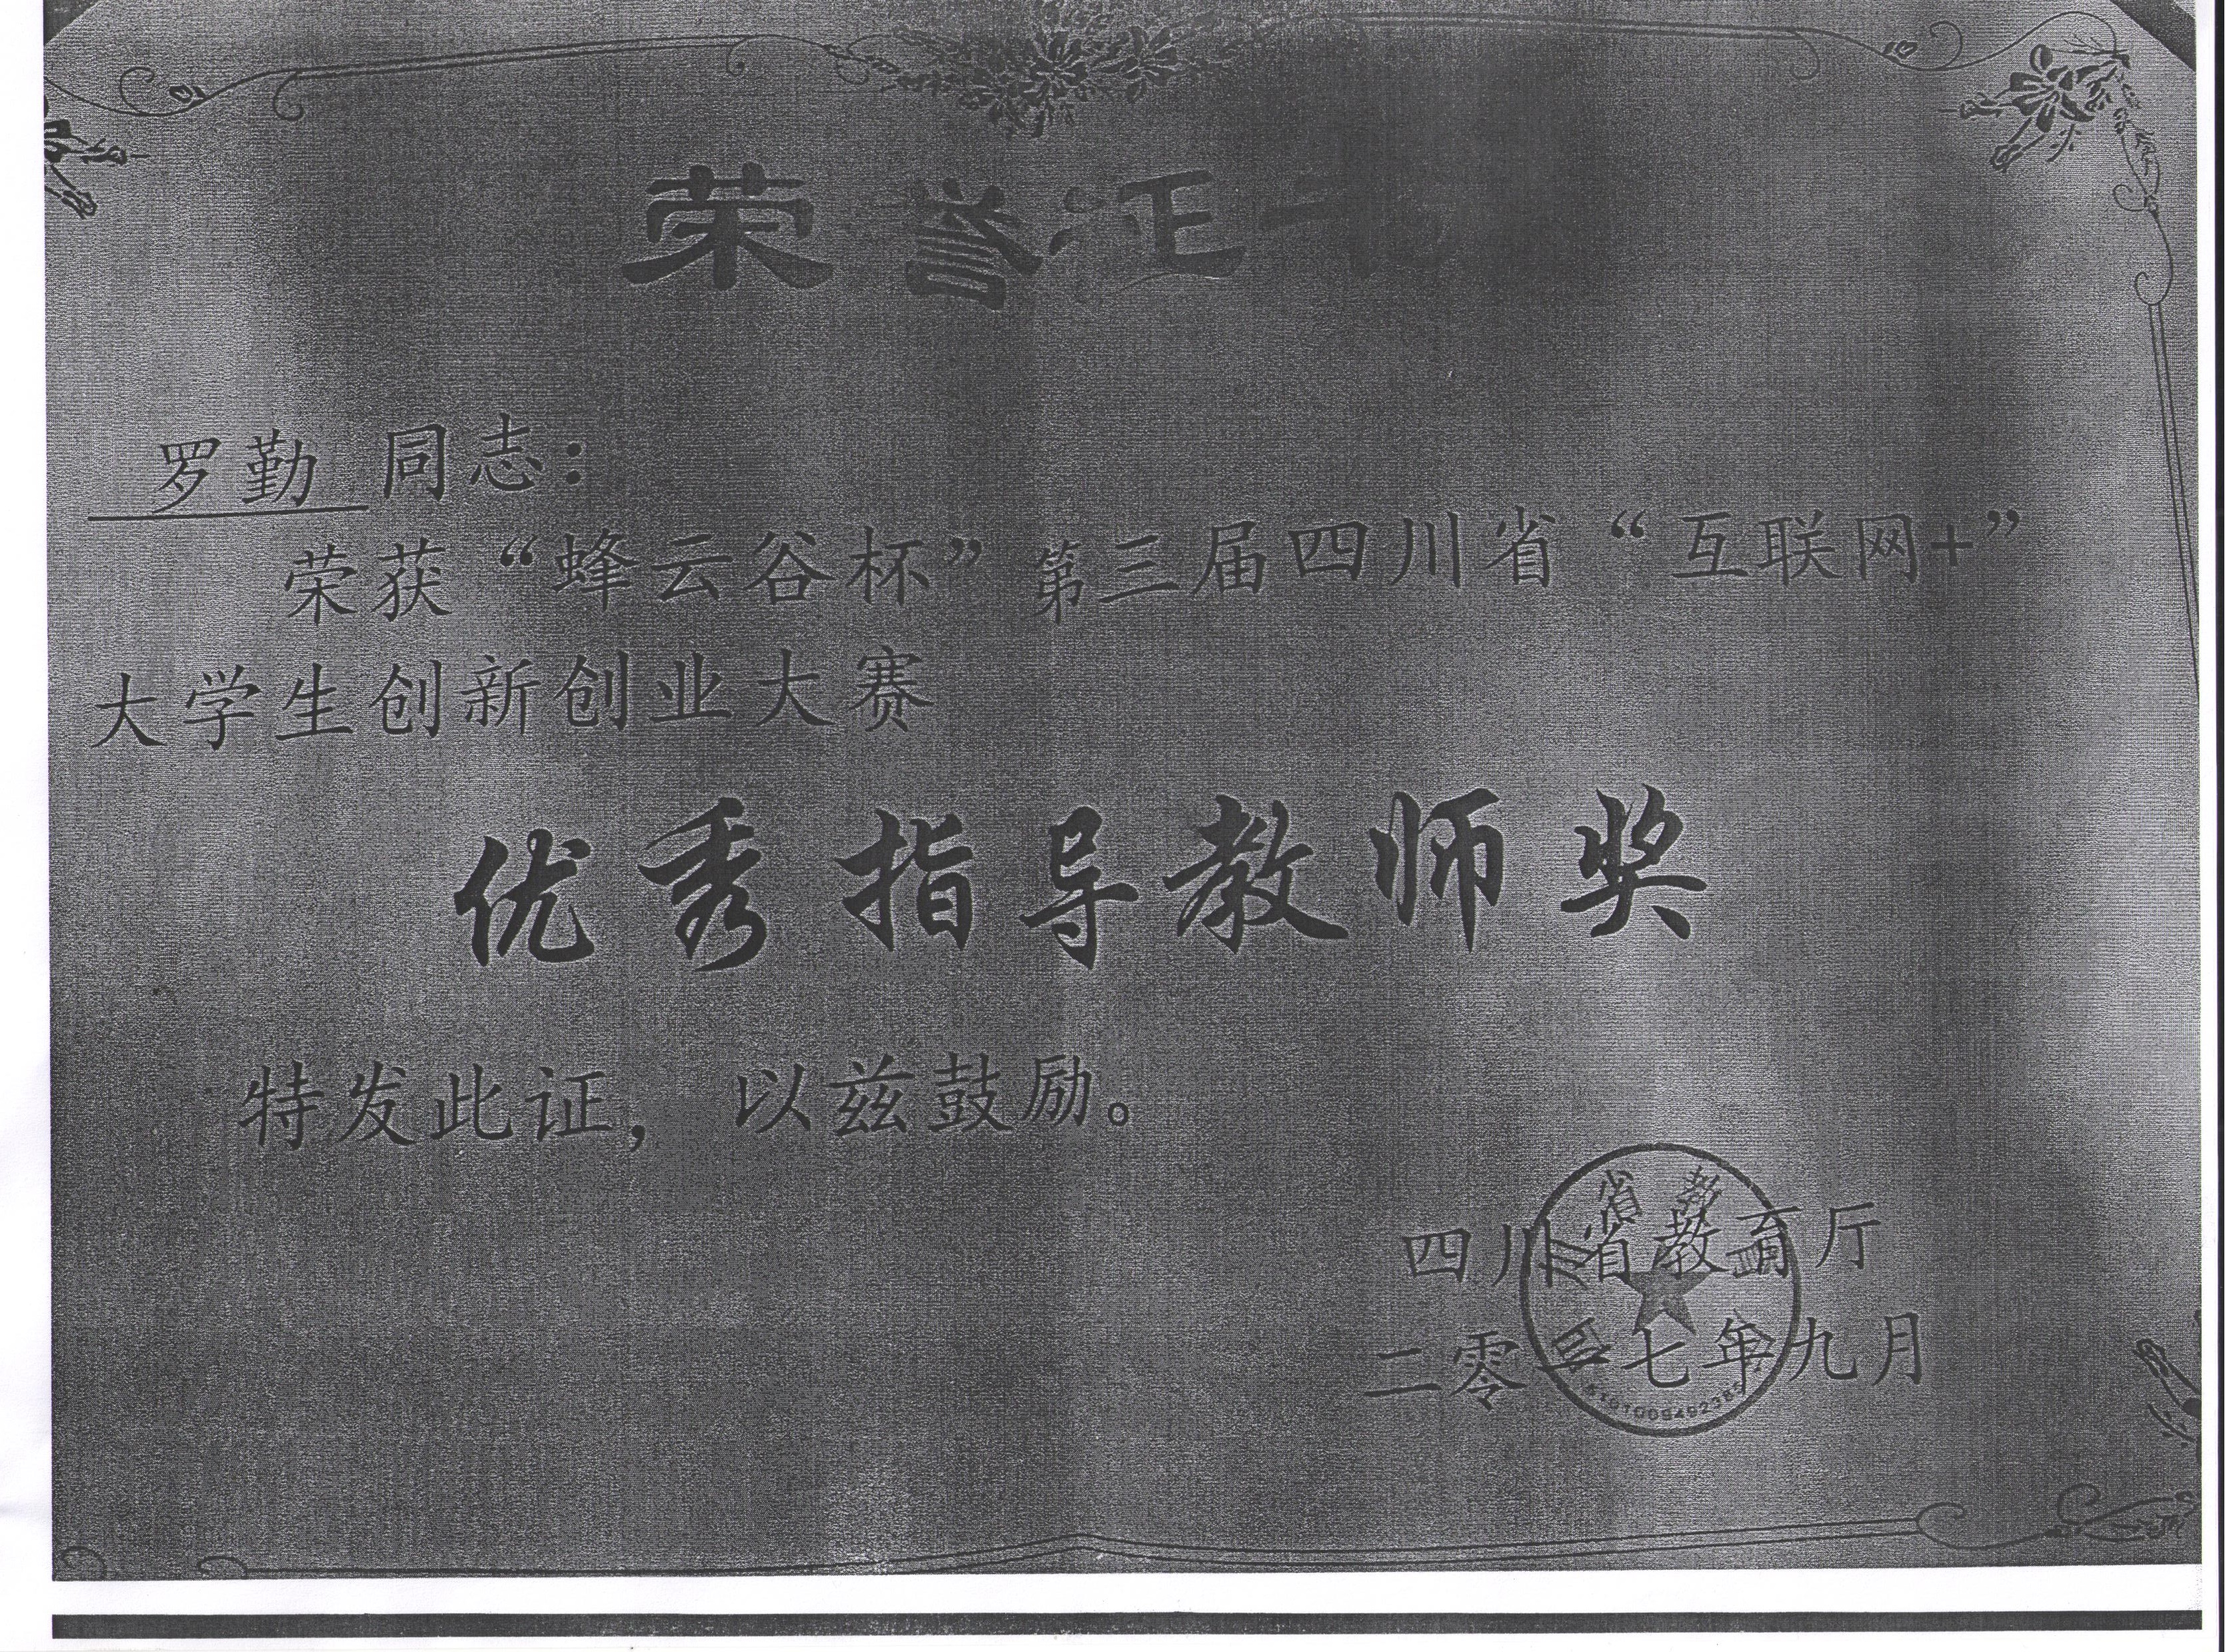 荣誉证书
罗勤 同志：
荣获“蜂云谷杯”第三届四川省“互联网+”
大学生创新创业大赛
优秀指导教师奖
特发此证，以兹鼓励。
四川省教育厅
二零一七年九月